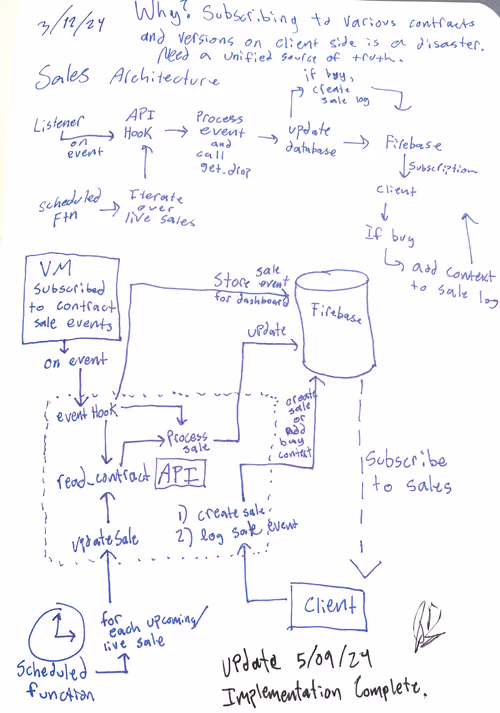 3/12/24
Why? Subscribing to various contracts
and versions on client side is a disaster.
Need a unified source of truth.
Sales Architecture
if buy,
create
sale log
Listener
on
event
API
Hook
Process
event
and
call
get_drop
update
database
Firebase
Subscription
client
If buy
add context
to sale log
scheduled
Ftn
Iterate
over
live sales
VM
Subscribed
to contract
sale events
on event
Store sale event
for dashboard
Firebase
update
eventHook
Process
sale
read_contract
API
create
sale
or
add
buy
context
Subscribe
to sales
1) create sale
2) log sale event
updateSale
Client
for
each upcoming/
live sale
Scheduled
function
Update 5/09/24
Implementation Complete.